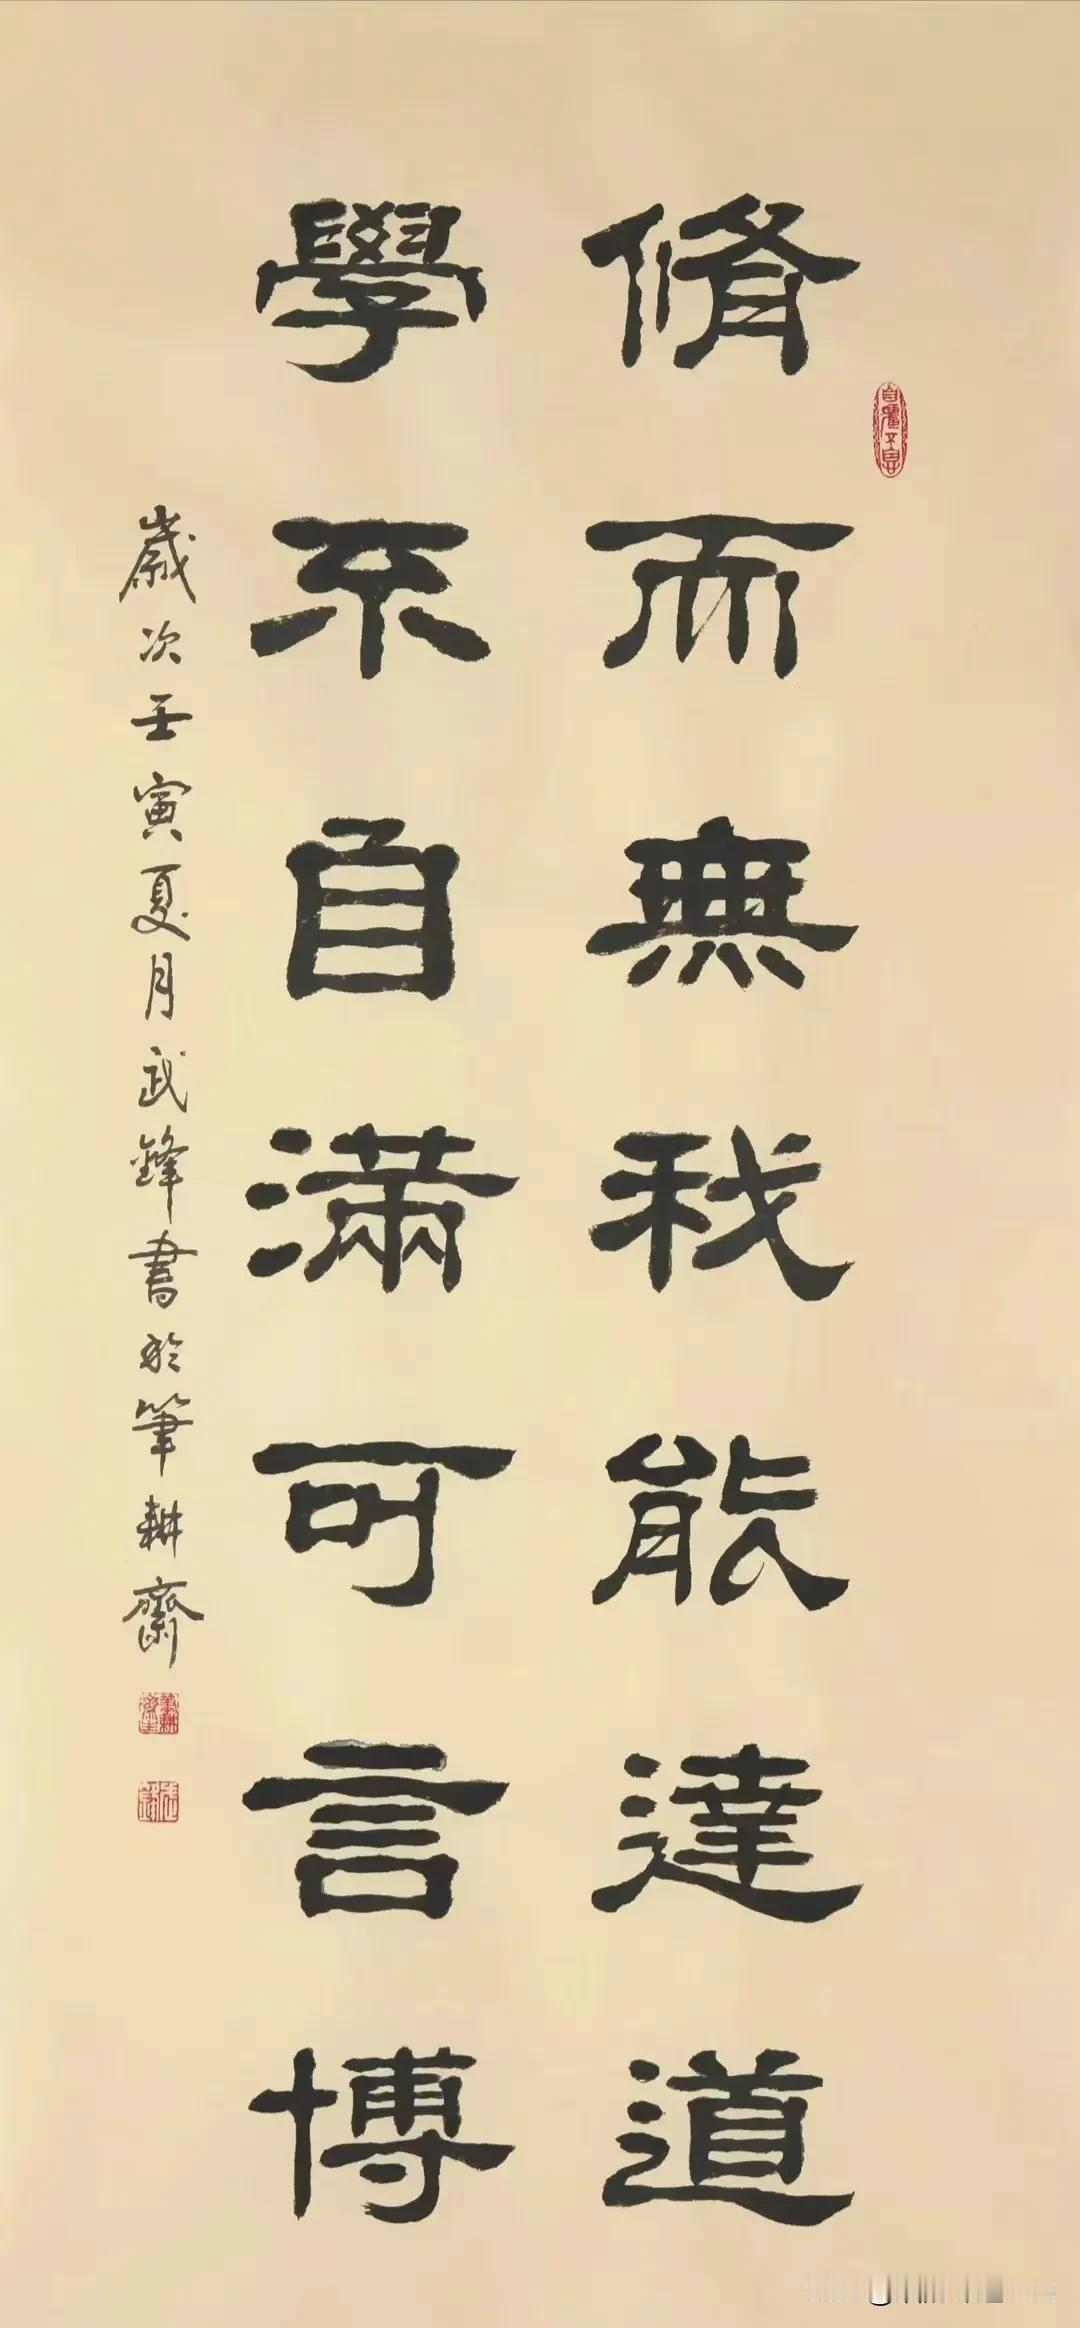 脩而無我能達道
學不自滿可言博
歲次壬寅夏月武鋒書於筆耕齋
自彊不息